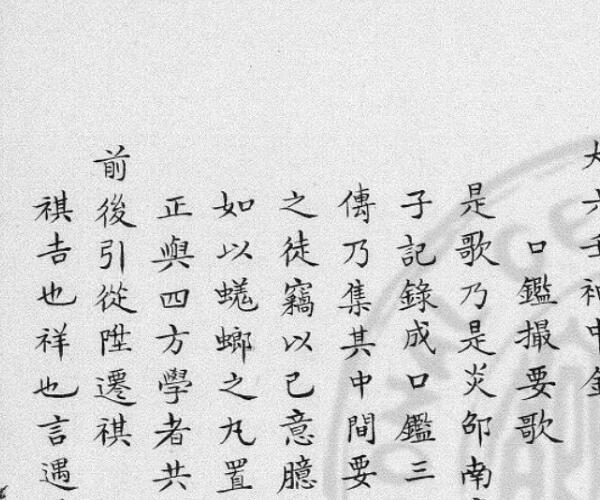 大六壬神中金
口鑑撮要歌
是歌乃是炎邵南
子記錄成口鑑三
傳乃集其中間要
之徒竊以己意臆
如以蜣螂之丸置
正與四方學者共
前後引從陞遷祺
祺吉也祥也言遇